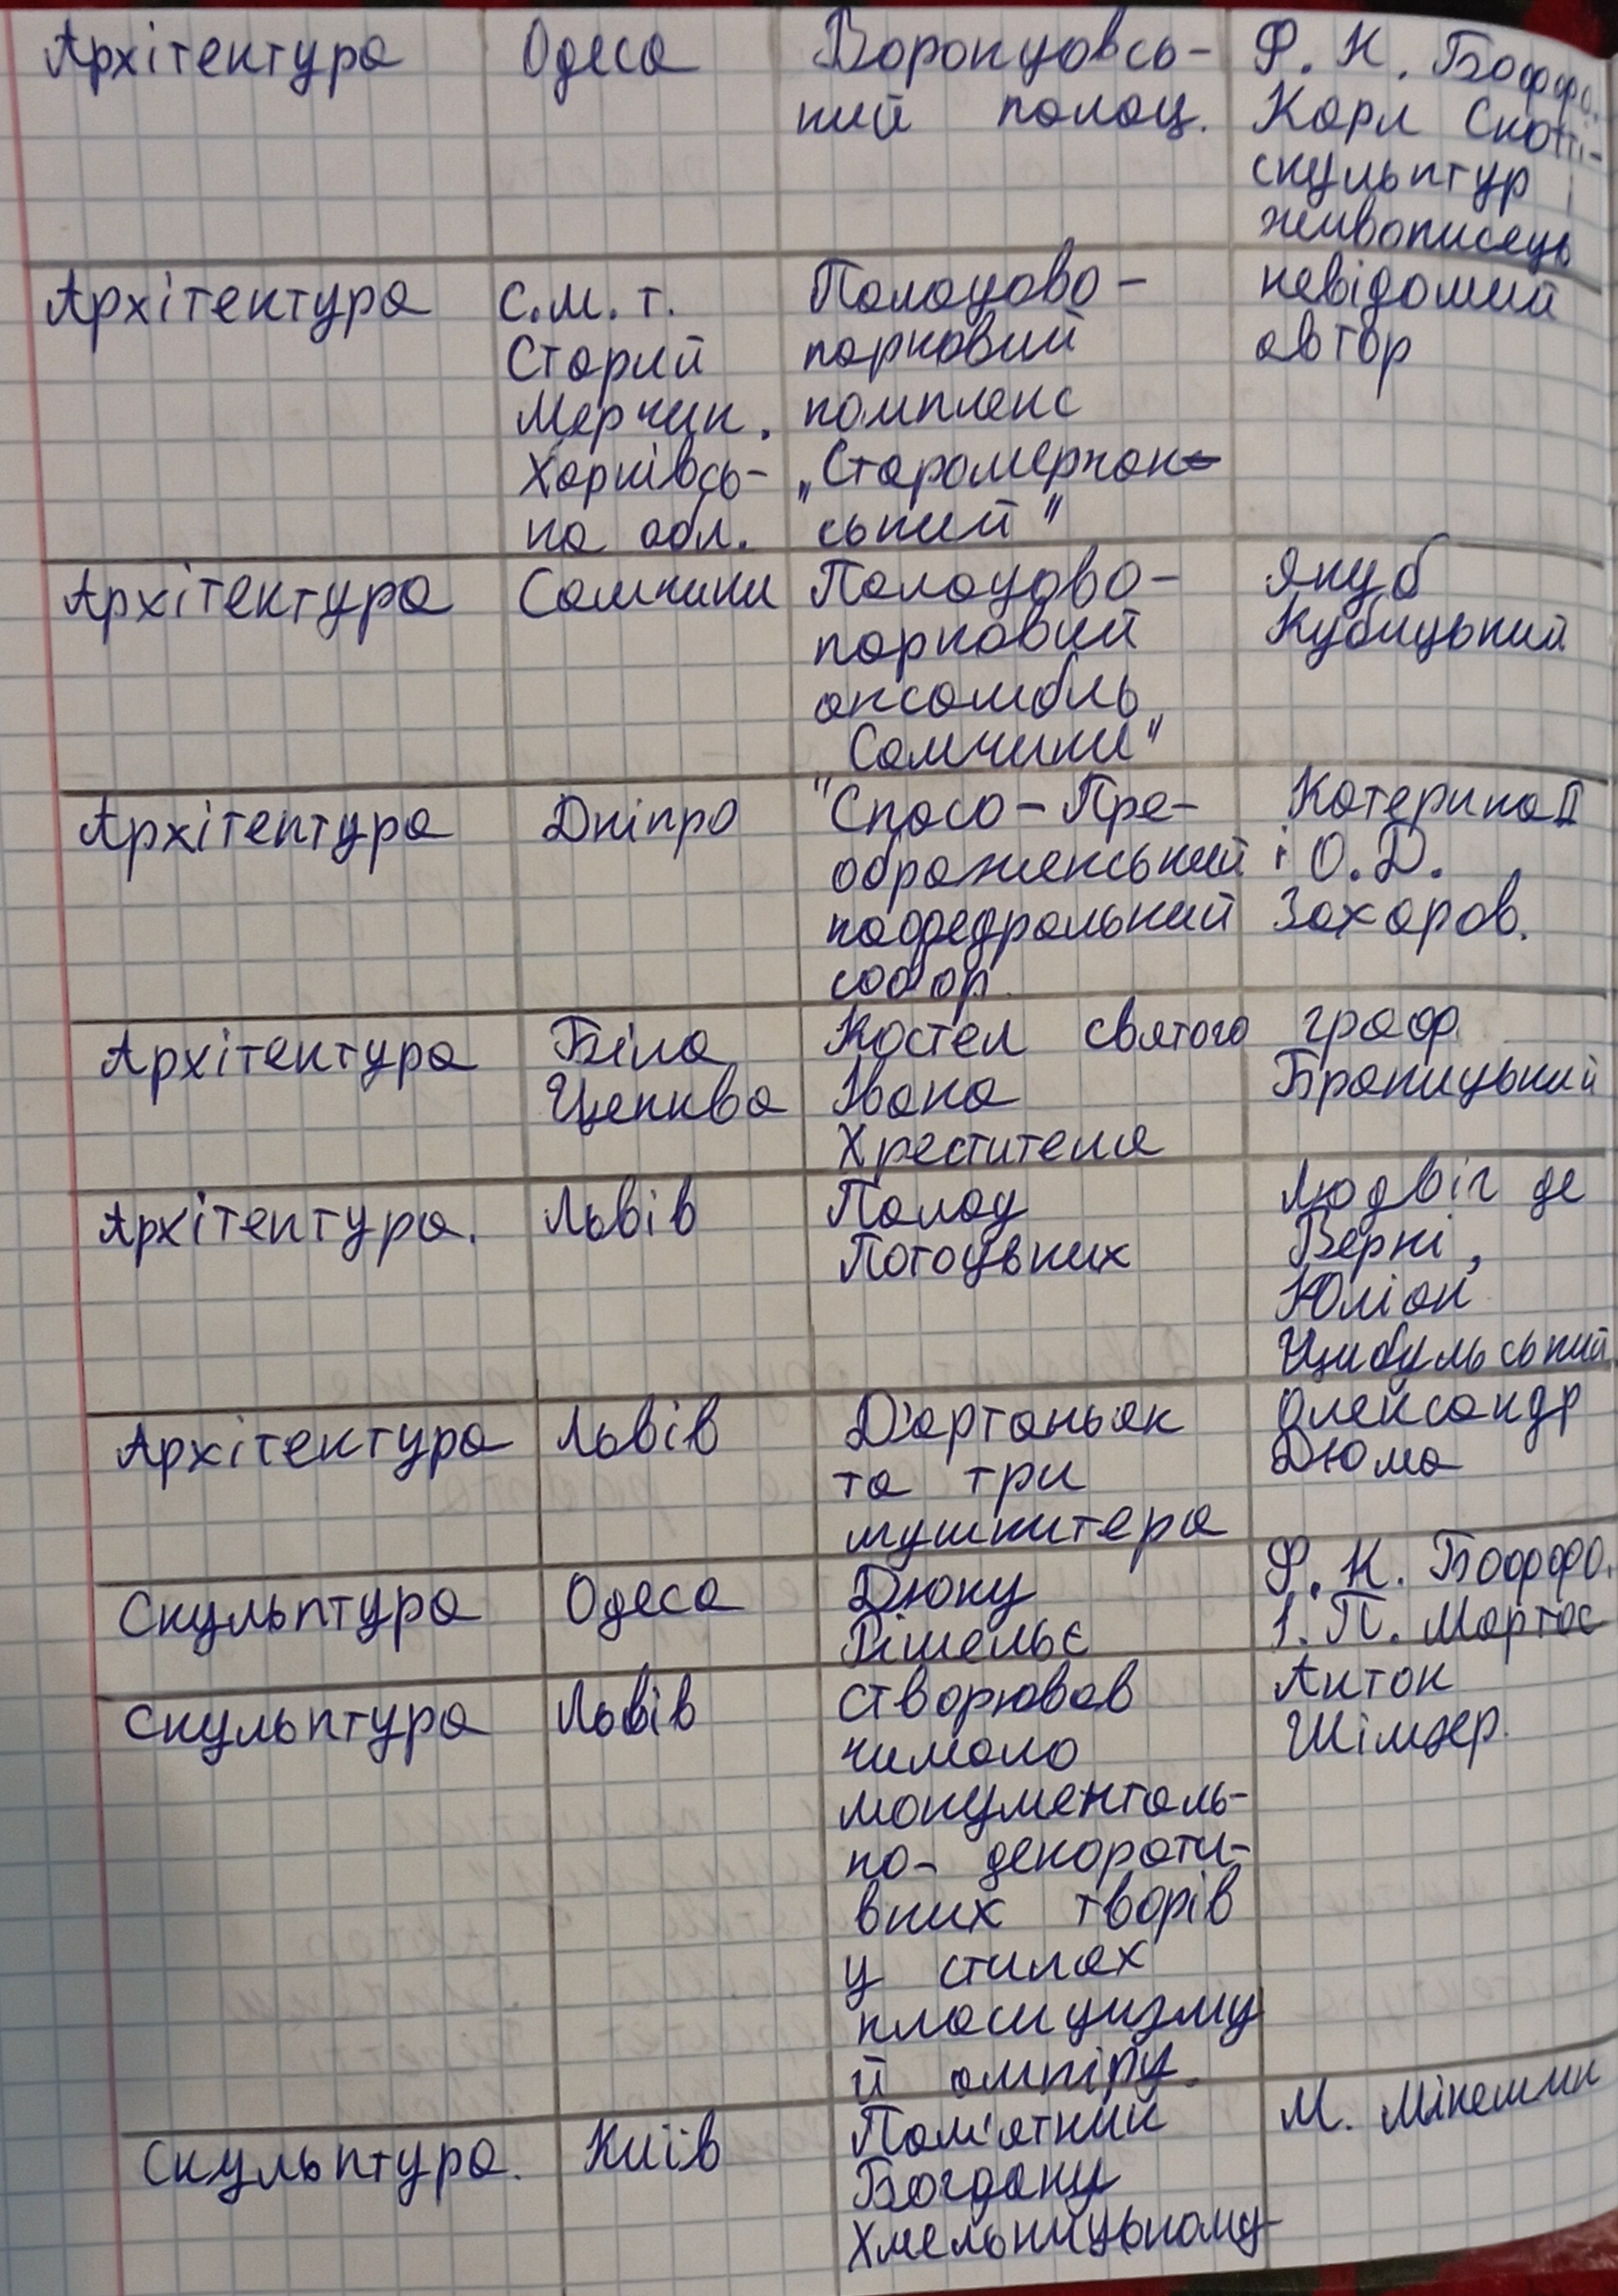 Архітектура Одеса Воронцовсь- Ф. К. Боффо.
кий палац. Карл Скотті-
скульптур і
живописець
Архітектура С.м.т. Палацово- невідомий
Старий парковий автор
Мерчик. комплекс
Харківсь- „Старомерчан-
ка обл. ський"
Архітектура Самчики Палацово- Якуб
парковий Кубицький
ансамбль
„Самчики"
Архітектура Дніпро "Спасо-Пре- Катерина II
ображенський і О.Д.
кафедральний Захаров.
собор.
Архітектура Біла Костел святого граф
Церква Івана Браницький
Хрестителя
Архітектура. Львів Палац Людвіг де
Потоцьких Верні,
Юліан
Цибульський
Архітектура Львів Д'артаньян Олександр
та три Дюма
мушкитера
Скульптура Одеса Дюку Ф. К. Боффо.
Рішельє І. П. Мартос
Скульптура Львів створював Антон
чимало Шімзер.
монументаль-
но- декорати-
вних творів
у стилях
класицизму
й ампіру.
Скульптура. Київ Пам'ятник М. Мікешин
Богдану
Хмельницькому